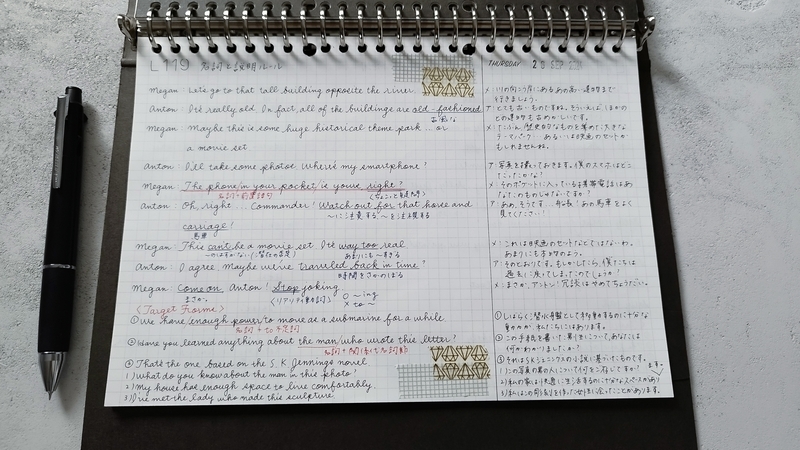 L 119 名詞と説明ルール
THURSDAY 2 SEP 2024
Megan: Let's go to that tall building opposite the river.
Anton: It's really old. In fact all of the buildings are old-fashioned.
古風な
Megan: Maybe this is some huge historical theme park ... or
a movie set
Anton: I'll take some photos. Where's my smartphone?
Megan: The phone in your pocket is yours, right?
名詞+前置詞句
Anton: Oh, right ... Commander! Watch out for that horse and
〜に注意する、〜を注視する
carriage!
馬車
Megan: This can't be a movie set. It's way too real
〜のはずがない
あまりにも〜すぎる
Anton: I agree. Maybe we've traveled back in time?
時間をさかのぼる
Megan: Come on, Anton! Stop joking
まさか。
○ 〜ing
× to 〜
<Target Forms>
① We have enough power to move as a submarine for a while
名詞 + to 不定詞
② Have you learned anything about the man who wrote this letter?
名詞+関係代名詞節
③ That's the one based on the S. K. Jennings novel
1) What do you know about the man in this photo?
2) My house has enough space to live comfortably.
3) I've met the lady who made this sculpture.
メ: 川の向こう岸にあるあの高い建物まで
行きましょう。
ア: とても古いものですね。そういえばほかの
どの建物も古めかしいです。
テーマパーク、あるいは映画のセットか
もしれませんね。
ア: 写真を撮っておきます。僕のスマホはどこ
だったかな?
メ: そのポケットに入っている携帯電話はあ
なたのものじゃないですか?
ア: あ、そうです。船長!あの馬車をよく
見てください!
メ: これは映画のセットなどではないわ。
あまりにも本物のよう。
ア: そのとおりです。もしかしたら、僕たちは
過去に戻ってしまったのでしょうか?
メ: まさか、アントン!冗談はやめてちょうだい。
① しばらく潜水艦として移動するのに十分な
動力が、私たちにはあります。
② この手紙を書いた男性について、あなたは
何かわかりましたか?
1) この写真の男の人について何をご存じですか?